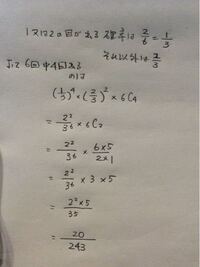 1又は2の目が出る確率は 2/6 = 1/3
それ以外は 2/3
6回中4回出る
のは
(1/3)^4 × (2/3)^2 × 6C4
= 2^2/3^6 × 6C2
= 2^2/3^6 × 6×5/2×1
= 2^2/3^6 × 3 × 5
= 2^2×5/3^5
= 20/243